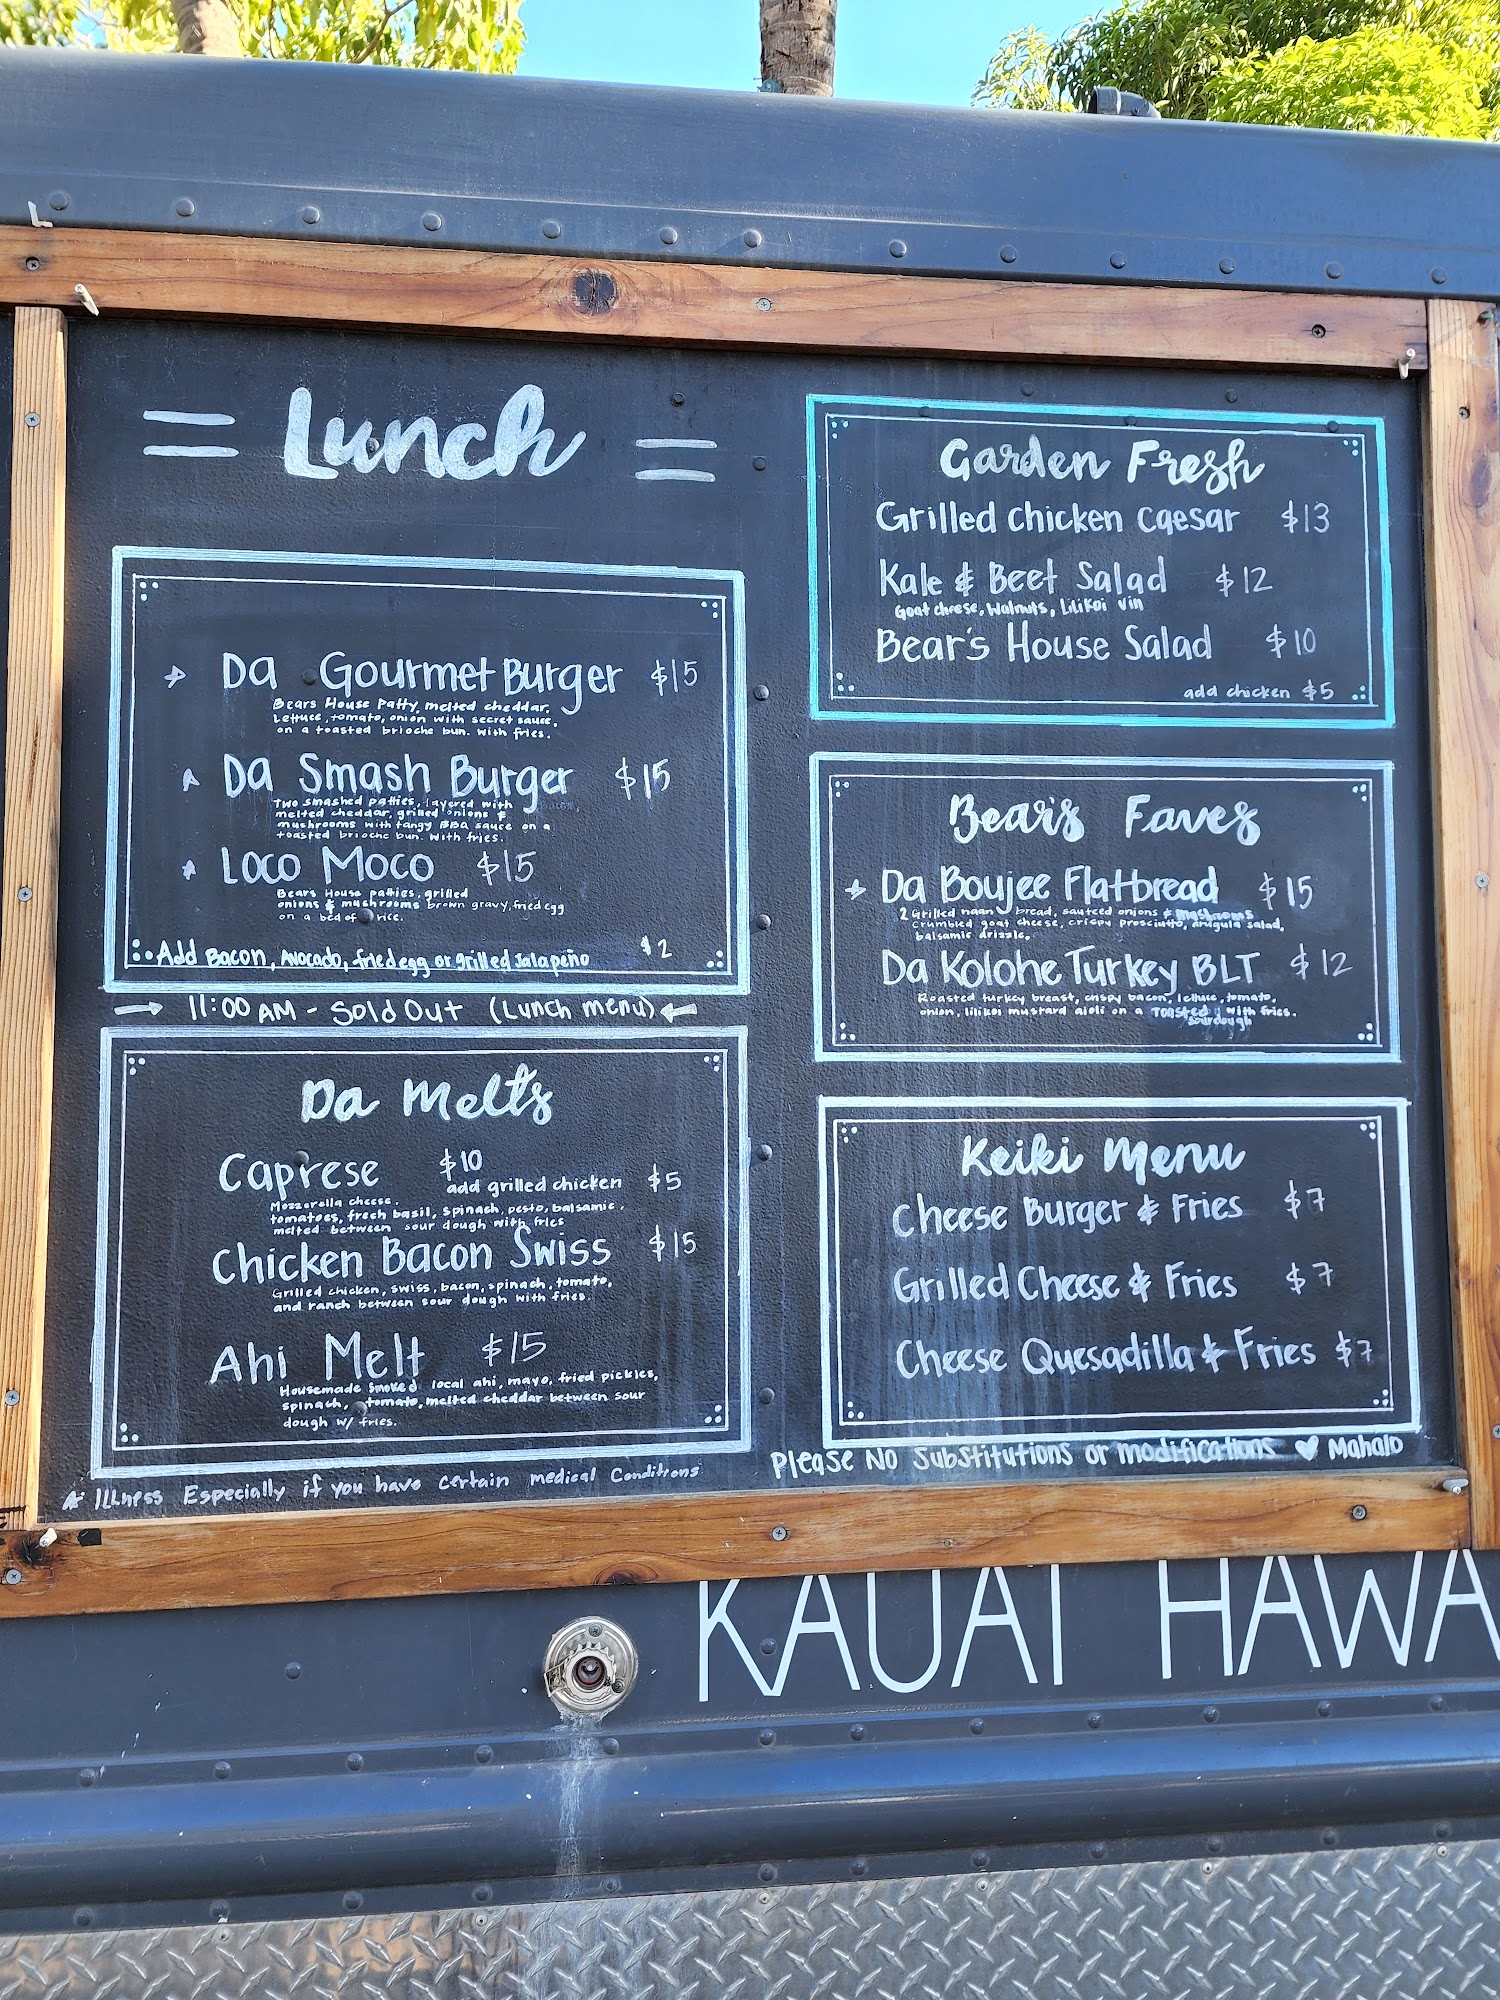 Lunch
Da Gourmet Burger $15
Bears House Patty, melted cheddar,
Lettuce, tomato, onion with secret sauce,
on a toasted brioche bun. With fries.
Da Smash Burger $15
Two smashed patties, layered with
melted cheddar, grilled onions &
mushrooms with tangy BBQ sauce on a
toasted brioche bun. With fries.
Loco Moco $15
Bears House patties, grilled
onions & mushrooms brown gravy, fried egg
on a bed of rice.
Add Bacon, Avocado, fried egg or grilled Jalapeño $2
→ 11:00 AM - Sold Out (Lunch menu) ←
Da Melts
Caprese $10
add grilled chicken $5
Mozzarella cheese,
tomatoes, fresh basil, spinach, pesto, balsamic,
melted between sour dough with fries
Chicken Bacon Swiss $15
Grilled chicken, swiss, bacon, spinach, tomato,
and ranch between sour dough with fries.
Ahi Melt $15
Housemade smoked local ahi, mayo, fried pickles,
spinach, tomato, melted cheddar between sour
dough w/ fries.
Illness Especially if you have certain medical Conditions
Garden Fresh
Grilled Chicken Caesar $13
Kale & Beet Salad $12
Goat cheese, Walnuts, Lilikoi Vin
Bear's House Salad $10
add chicken $5
Bear's Faves
Da Boujee Flatbread $15
2 Grilled naan bread, sauteed onions & mushrooms
crumbled goat cheese, crispy prosciutto, arugula salad,
balsamic drizzle.
Da Kolohe Turkey BLT $12
Roasted turkey breast, crispy bacon, lettuce, tomato,
onion, lilikoi mustard aioli on a Toasted with fries.
sourdough
Keiki Menu
Cheese Burger & Fries $7
Grilled Cheese & Fries $7
Cheese Quesadilla & Fries $7
Please No Substitutions or modifications ♥ Mahalo
KAUAI HAWA